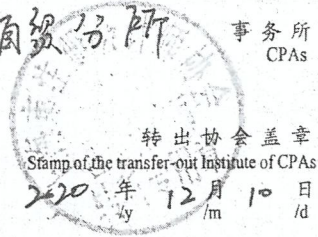 分所 事务所
CPAs
转出协会盖章
Stamp of the transfer-out Institute of CPAs
2020 年 12 月 10 日
/y /m /d